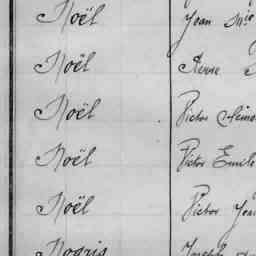 Noël Jean Mie
Noël Pierre
Noël Victor
Noël Victor Emile
Noël Victor Jean
Nogris Joseph